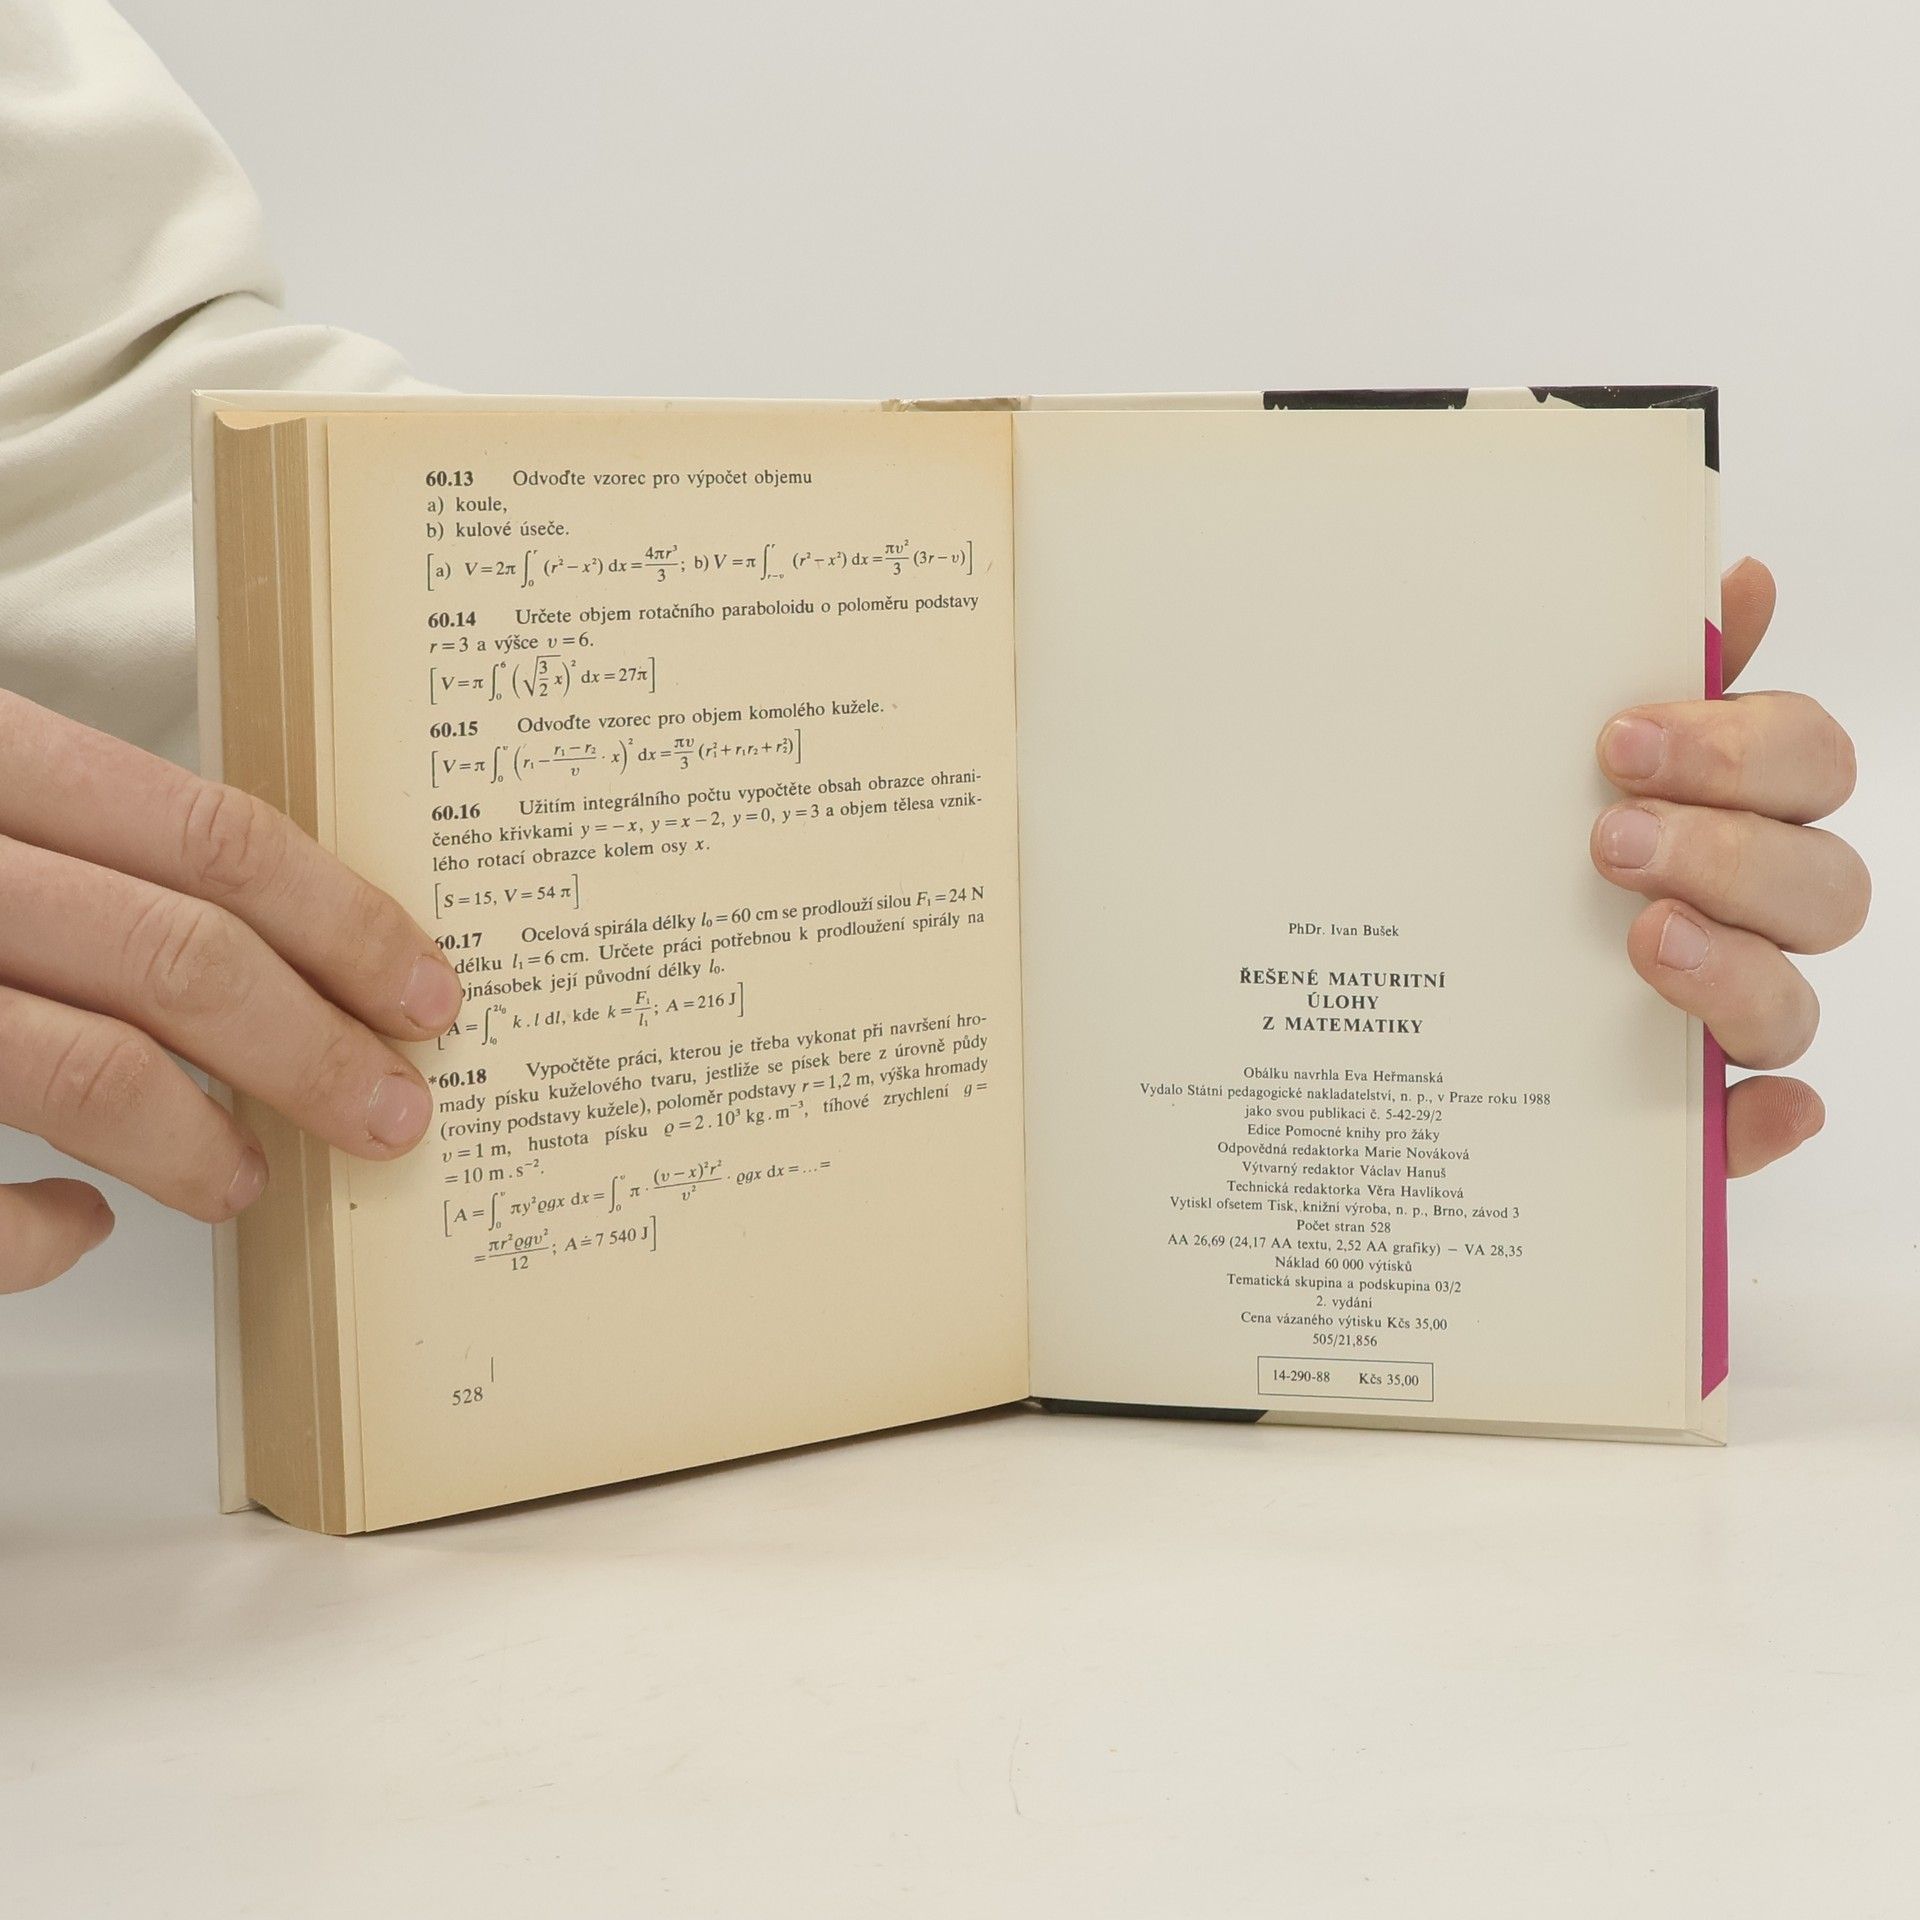 60.13 Odvoďte vzorec pro výpočet objemu
a) koule,
b) kulové úseče.
[a) V=2π∫₀ʳ (r²−x²) dx=4πr³/3; b) V=π∫ᵣ₋ᵥʳ (r²−x²) dx=πv²/3 (3r−v)]
60.14 Určete objem rotačního paraboloidu o poloměru podstavy
r=3 a výšce v=6.
[V=π∫₀⁶ (√(3/2 x))² dx=27π]
60.15 Odvoďte vzorec pro objem komolého kužele.
[V=π∫₀ᵛ (r₁−(r₁−r₂)/v · x)² dx=πv/3 (r₁²+r₁r₂+r₂²)]
60.16 Užitím integrálního počtu vypočtěte obsah obrazce ohrani-
čeného křivkami y=−x, y=x−2, y=0, y=3 a objem tělesa vznik-
lého rotací obrazce kolem osy x.
[S=15, V=54 π]
60.17 Ocelová spirála délky l₀=60 cm se prodlouží silou F₁=24 N
délku l₁=6 cm. Určete práci potřebnou k prodloužení spirály na
ojnásobek její původní délky l₀.
[A=∫ₗ₀²ˡ⁰ k.l dl, kde k=F₁/l₁; A=216 J]
*60.18 Vypočtěte práci, kterou je třeba vykonat při navršení hro-
mady písku kuželového tvaru, jestliže se písek bere z úrovně půdy
(roviny podstavy kužele), poloměr podstavy r=1,2 m, výška hromady
v=1 m, hustota písku ϱ=2.10³ kg.m⁻³, tíhové zrychlení g=
=10 m.s⁻².
[A=∫₀ᵛ πy²ϱgx dx=∫₀ᵛ π·(v−x)²r²/v² · ϱgx dx=...=
=πr²ϱgv²/12; A≐7 540 J]
528
PhDr. Ivan Bušek
ŘEŠENÉ MATURITNÍ
ÚLOHY
Z MATEMATIKY
Obálku navrhla Eva Heřmanská
Vydalo Státní pedagogické nakladatelství, n. p., v Praze roku 1988
jako svou publikaci č. 5-42-29/2
Edice Pomocné knihy pro žáky
Odpovědná redaktorka Marie Nováková
Výtvarný redaktor Václav Hanuš
Technická redaktorka Věra Havlíková
Vytiskl ofsetem Tisk, knižní výroba, n. p., Brno, závod 3
Počet stran 528
AA 26,69 (24,17 AA textu, 2,52 AA grafiky) – VA 28,35
Náklad 60 000 výtisků
Tematická skupina a podskupina 03/2
2. vydání
Cena vázaného výtisku Kčs 35,00
505/21,856
14-290-88 Kčs 35,00